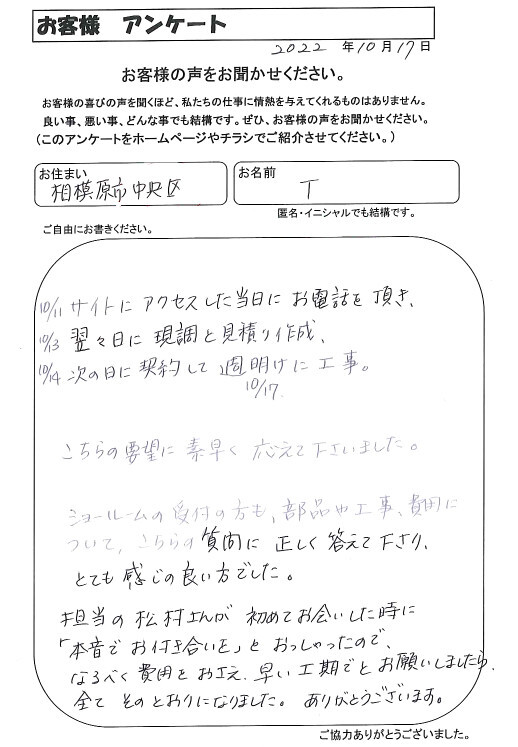 お客様 アンケート
2022 年10月17日
お客様の声をお聞かせください。
お客様の喜びの声を聞くほど、私たちの仕事に情熱を与えてくれるものはありません。
良い事、悪い事、どんな事でも結構です。ぜひ、お客様の声をお聞かせください。
(このアンケートをホームページやチラシでご紹介させてください。)
お住まい
相模原市中央区
お名前
T
匿名・イニシャルでも結構です。
ご自由にお書きください。
10/11 サイトにアクセスした当日にお電話を頂き、
10/13 翌々日に現調と見積り作成、
10/14 次の日に契約して週明けに工事。
10/17.
こちらの要望に素早く応えて下さいました。
ショールームの受付の方も、部品や工事、費用に
ついて、こちらの質問に正しく答えて下さり、
とても感じの良い方でした。
担当の松村さんが初めてお会いした時に
「本音でお付き合いを」とおっしゃったので、
なるべく費用をおさえ、早い工期でとお願いしましたら、
全てそのとおりになりました。ありがとうございます。
ご協力ありがとうございました。